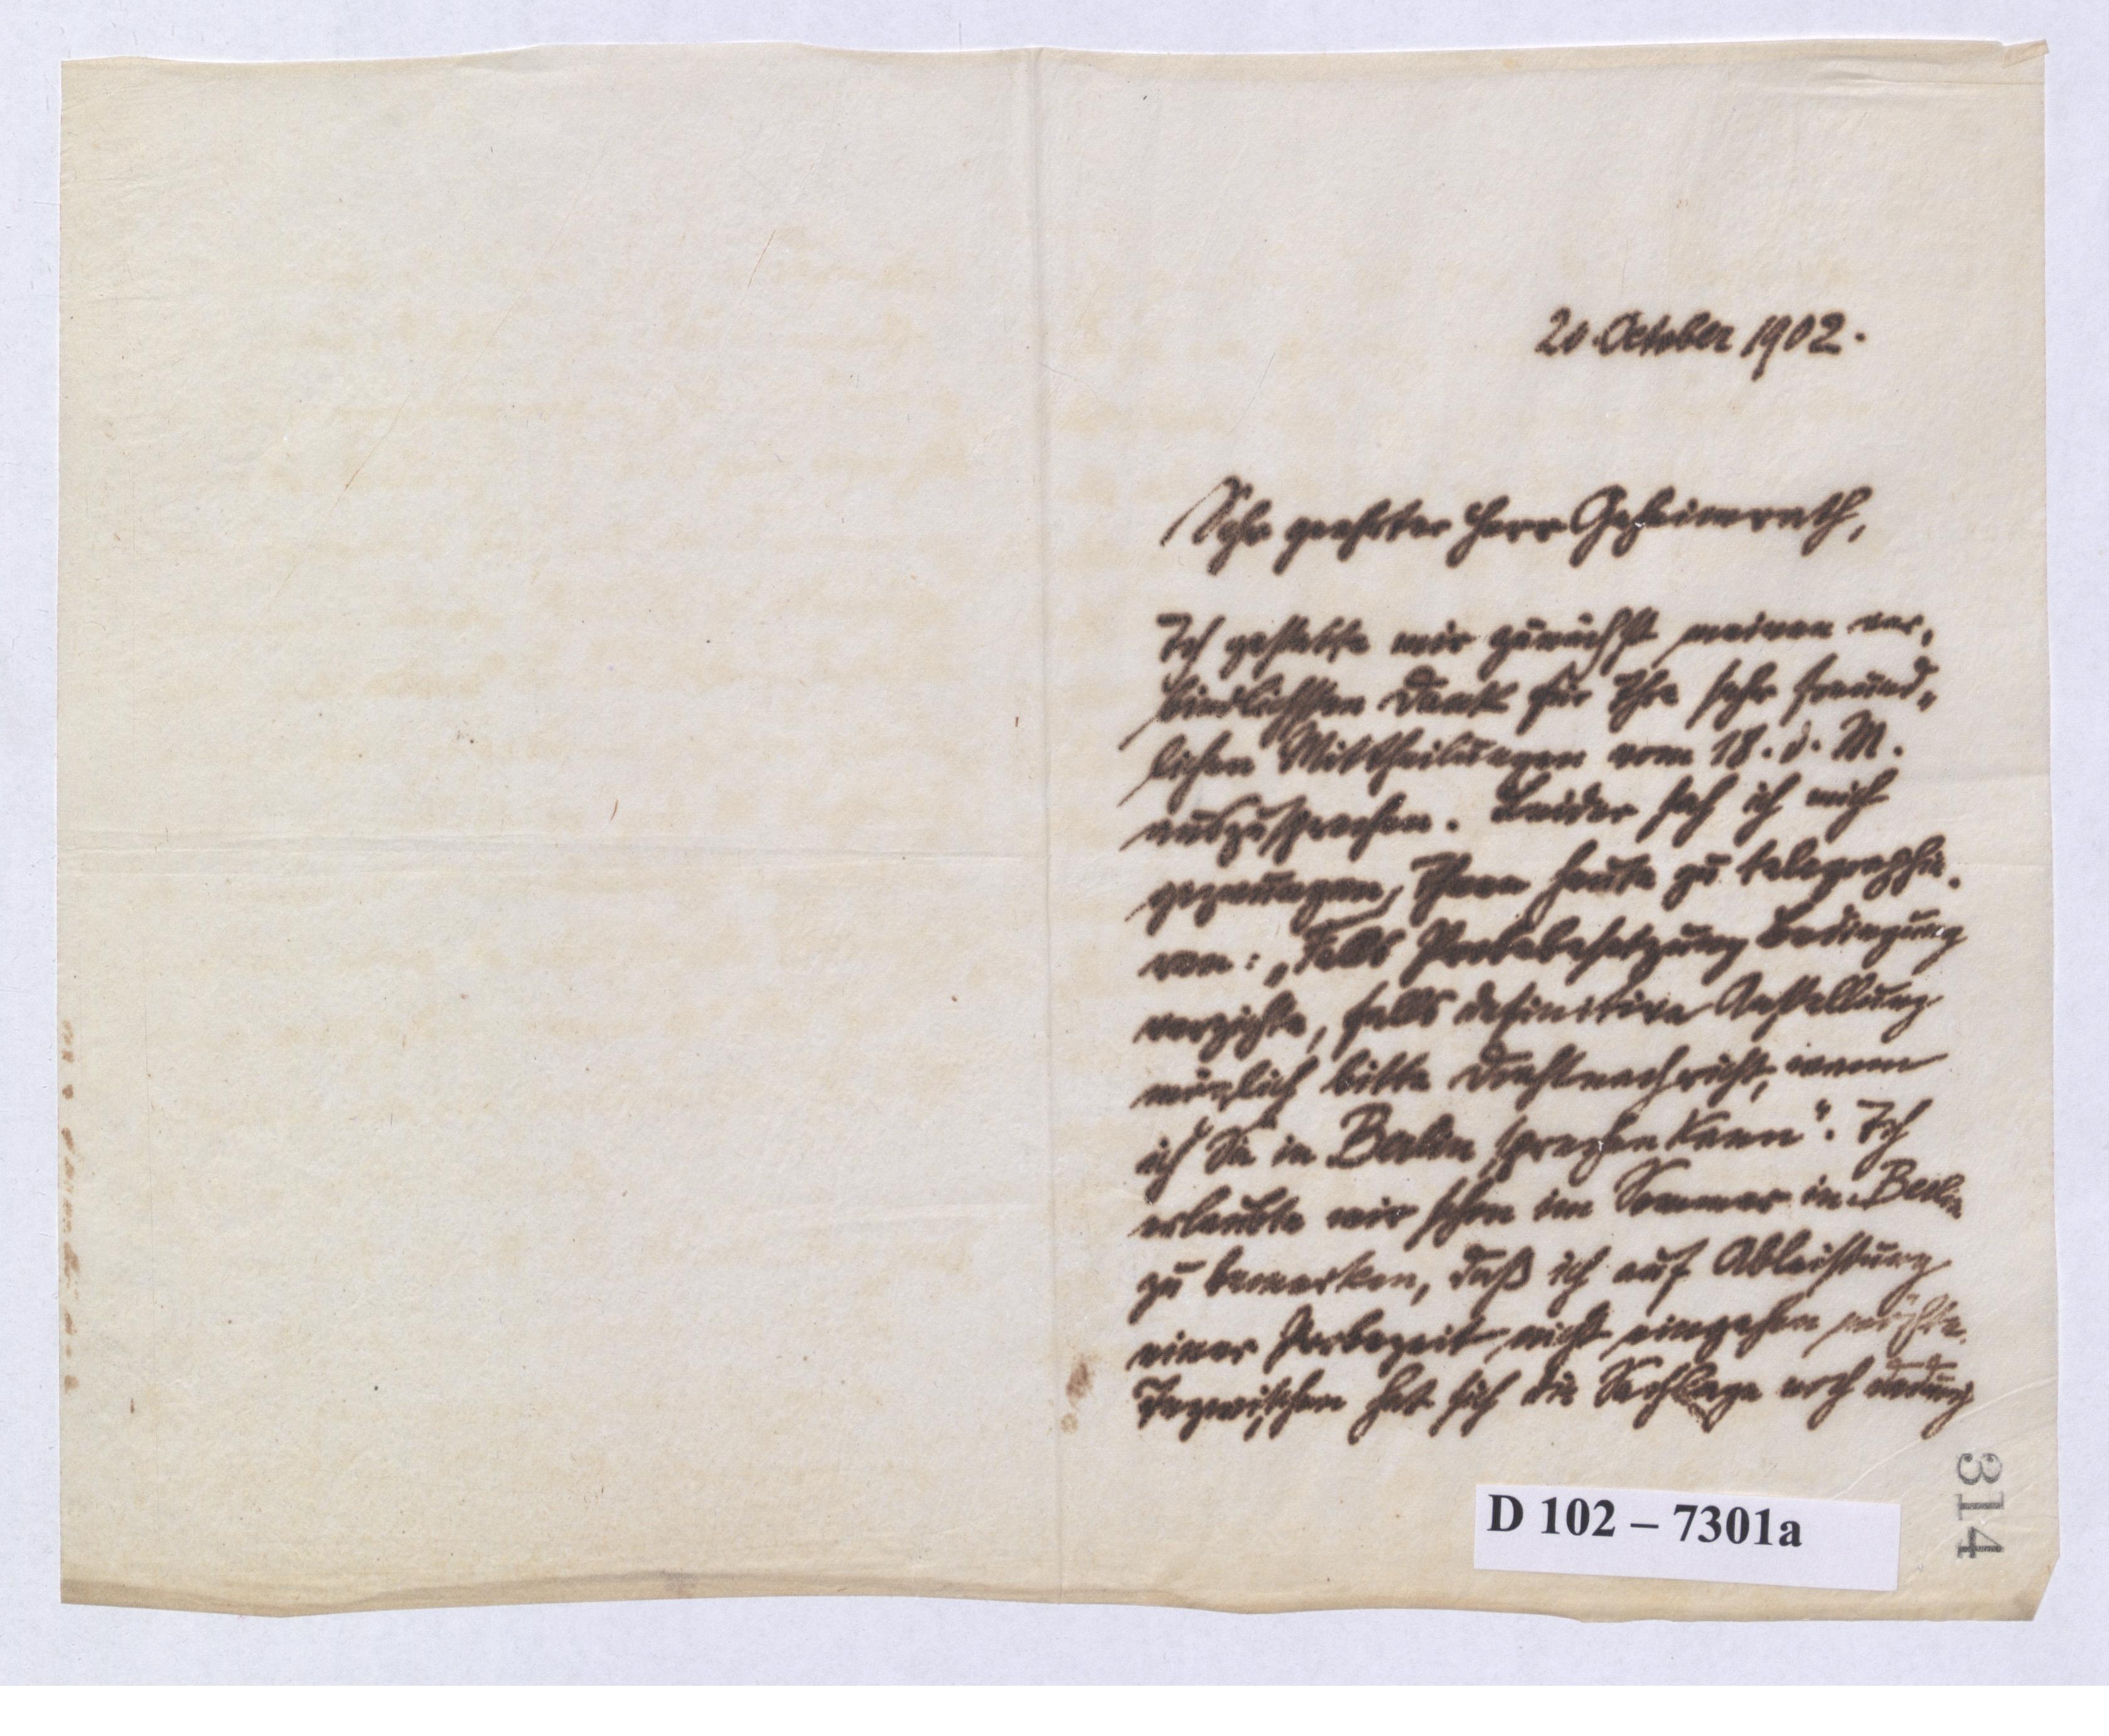 20. October 1902.
Sehr geehrter Herr Geheimrath,
Ich gestatte mir zunächst meinen ver-
bindlichsten Dank für Ihre sehr freund-
lichen Mittheilungen vom 18. d. M.
auszusprechen. Leider sah ich mich
gezwungen, Ihnen heute zu telegraphie-
ren: „Falls Probebesetzung Bedingung
verzichte, falls definitive Anstellung
möglich bitte Drahtnachricht, wann
ich Sie in Berlin sprechen kann". Ich
erlaubte mir schon im Sommer in Berlin
zu bemerken, daß ich auf Ableistung
einer Probezeit nicht eingehen möchte.
Inzwischen hat sich die Sachlage noch dadurch
D 102 – 7301a
314